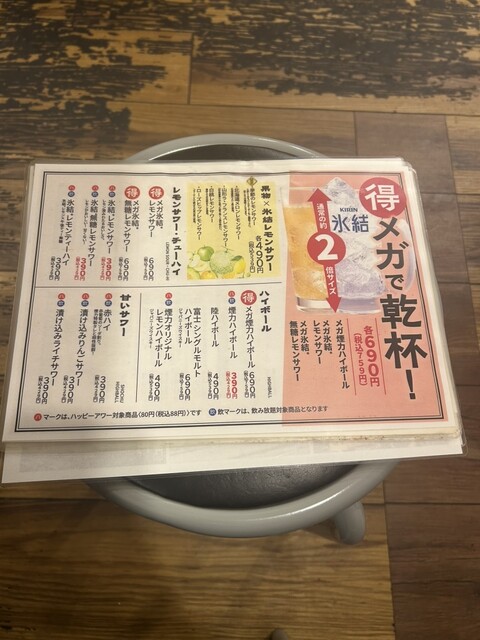 得 メガで乾杯！
KIRIN
氷結
通常の約
2
倍サイズ
メガ煙力ハイボール
メガ氷結®レモンサワー
メガ氷結®無糖レモンサワー
各690円
(税込759円)
果実×氷結レモンサワー
各490円
レモンサワー・チューハイ
得 メガ氷結®レモンサワー
690円
得 メガ氷結®無糖レモンサワー
690円
ハ 飲 氷結®レモンサワー
390円
ハ 飲 氷結®無糖レモンサワー
390円
飲 氷結®レモンティーハイ
390円
ハイボール
得 メガ煙力ハイボール
690円
ハ 飲 煙力ハイボール
390円
陸ハイボール
490円
富士シングルモルトハイボール
690円
煙力オリジナルレモンハイボール
490円
甘いサワー
赤ハイ
390円
漬け込みりんごサワー
390円
漬け込みライチサワー
390円
ハ マークは、ハッピーアワー対象商品〈80円(税込88円)〉です
飲 マークは、飲み放題対象商品となります